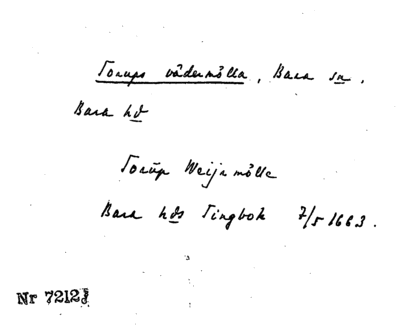 Torups vädermölla, Bara sn.
Bara hd
Torüp Weijrmölle
Bara hds Tingbok 7/5 1663.
Nr 7212